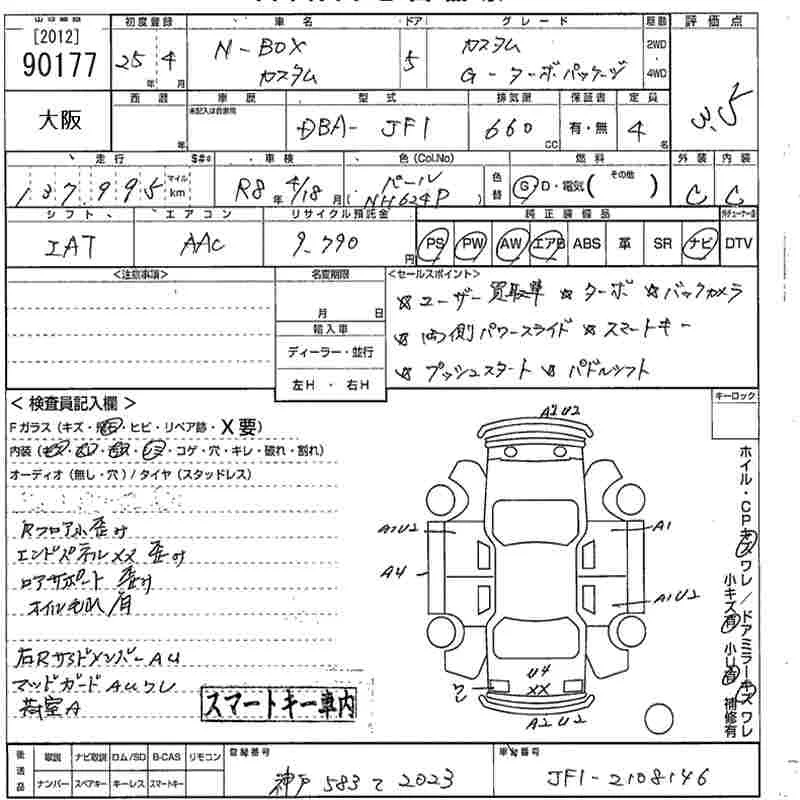 [2012]
90177
初度登録
25年 4月
車名
N-BOX
カスタム
ドア
5
グレード
カスタム
G-ターボパッケージ
駆動
2WD
・
4WD
評価点
3.5
大阪
西暦
年
車歴
未記入は自家用
型式
DBA- JF1
排気限
660
CC
保証書
有・無
定員
4
名
走行
137,995
マイル
km
S#
車検
R8年 4/18月
色(Col.No)
パール
(NH624P)
色替
燃料
G D・電気( その他 )
外装
C
内装
C
シフト
IAT
エアコン
AAC
リサイクル預託金
9,790
円
純正装備品
PS PW AW エアB ABS 革 SR ナビ DTV
<注意事項>
名変期限
月 日
輸入車
ディーラー・並行
左H・右H
<セールスポイント>
☆ユーザー買取車 ☆ターボ ☆バックカメラ
☆両側パワースライド ☆スマートキー
☆プッシュスタート ☆パドルシフト
キーロック
<検査員記入欄>
Fガラス(キズ・飛石・ヒビ・リペア跡・X要)
コゲ・穴・キレ・破れ・割れ)
オーディオ(無し・穴)/タイヤ(スタッドレス)
Rフロア小歪み
エンドパネルXX 歪み
ロアサポート 歪み
右Rサイドメンバー AU
マッドガード AUワレ
荷室A
スマートキー車内
A2 U2
A2 U2
A4
A1
A1 U2
U4
XX
A2 U2
ホイル・CPキズ ワレ/ドアミラーキズ ワレ
小キズ有 小凹有 補修有
後送品
取説 ナビ取説 ロム/SD B-CAS リモコン
ナンバー スペアキー キーレス スマートキー
登録番号
神戸 583 て 2023
車台番号
JF1-2108146